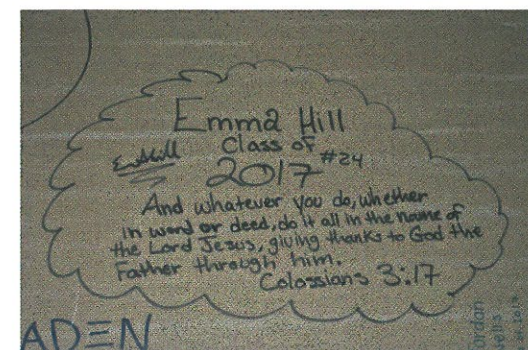 Emma Hill
Class of
2017 #24
And whatever you do, whether
in word or deed, do it all in the name of
the Lord Jesus, giving thanks to God the
Father through him.
Colossians 3:17
ADEN
Jordan